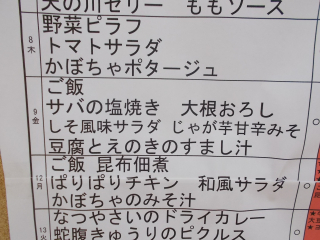 天の川ゼリー　ももソース
8
木
野菜ピラフ
トマトサラダ
かぼちゃポタージュ
9
金
ご飯
サバの塩焼き　大根おろし
しそ風味サラダ　じゃが芋甘辛みそ
豆腐とえのきのすまし汁
12
月
ご飯　昆布佃煮
ぱりぱりチキン　和風サラダ
かぼちゃのみそ汁
13
火
なつやさいのドライカレー
蛇腹きゅうりのピクルス